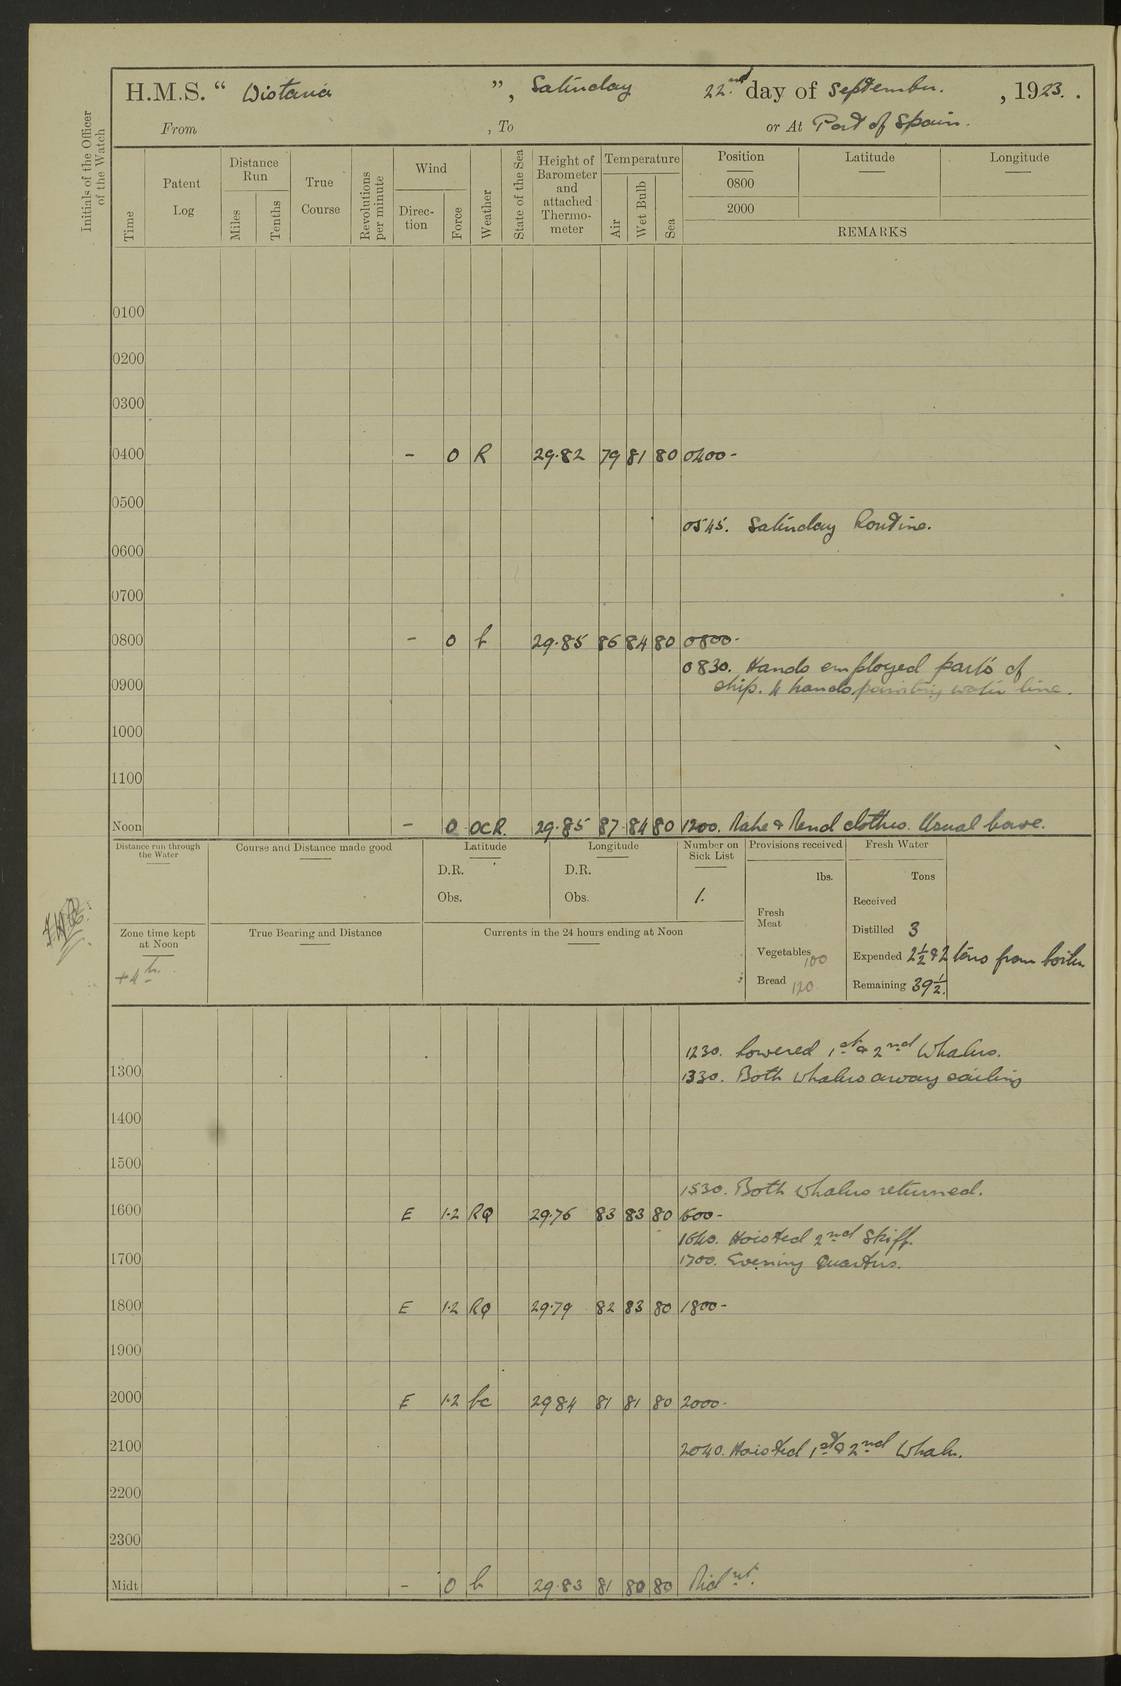 H.M.S. “ Wistaria ”, Saturday 22nd day of September. , 1923.
From , To or At Port of Spain.
Initials of the Officer of the Watch
Time
Patent Log
Distance Run
Miles
Tenths
True Course
Revolutions per minute
Wind
Direc-tion
Force
Weather
State of the Sea
Height of Barometer and attached Thermo-meter
Temperature
Air
Wet Bulb
Sea
Position Latitude Longitude
0800
2000
REMARKS
0100
0200
0300
0400 - 0 R 29.82 79 81 80 0400 -
0500
0545. Saturday Routine.
0600
0700
0800 - 0 b 29.85 86 84 80 0800 -
0830. Hands employed parts of
0900 ship. 4 hands painting water line.
1000
1100
Noon - 0 OCR. 29.85 87 84 80 1200. Make & Mend clothes. Usual leave.
Distance run through the Water
Course and Distance made good
Latitude
D.R.
Obs.
Longitude
D.R.
Obs.
Number on Sick List
1.
Provisions received
lbs.
Fresh Meat
Vegetables 100
Bread 120
Fresh Water
Tons
Received
Distilled 3
Expended 2½ & 2 tons from boiler
Remaining 39½.
Zone time kept at Noon
+4 h.
True Bearing and Distance
Currents in the 24 hours ending at Noon
1230. Lowered 1st & 2nd Whalers.
1300 1330. Both whalers away sailing
1400
1500
1530. Both whalers returned.
1600 E 1.2 RQ 29.76 83 83 80 1600 -
1640. Hoisted 2nd Skiff.
1700 1700. Evening Quarters.
1800 E 1.2 RQ 29.79 82 83 80 1800 -
1900
2000 E 1.2 bc 29 84 81 81 80 2000 -
2100 2040. Hoisted 1st & 2nd Whaler.
2200
2300
Midt - 0 b 29.83 81 80 80 Midnt.